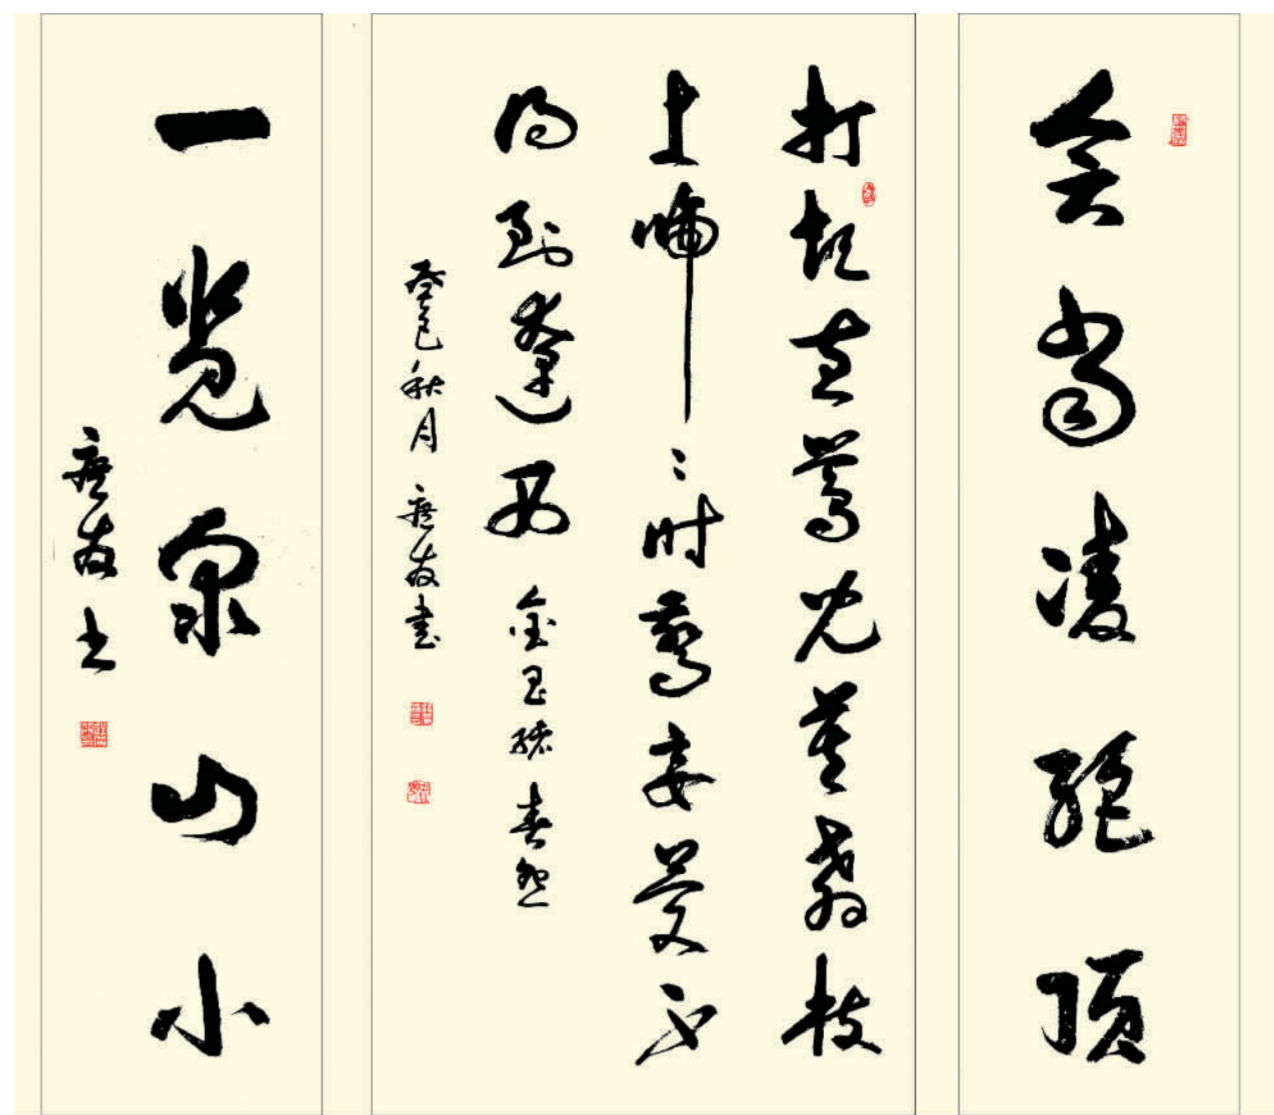 会當凌絕頂
打起黄鶯兒莫教枝
上啼〻时驚妾夢不
得到遼西 金昌緒春怨
癸巳秋月 書
一览众山小
书